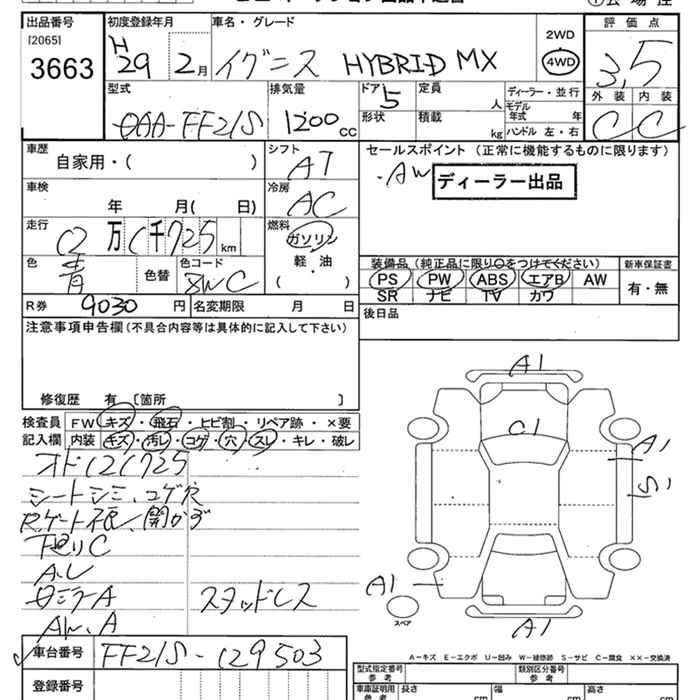 出品番号 初度登録年月 車名・グレード 評価点
[2065]
3663
H29 2月 イグニス HYBRID MX 2WD 4WD 3.5
型式 排気量 ドア 定員 ディーラー・並行 外装 内装
DAA-FF21S 1200cc 5 人 モデル年式 年 C C
形状 積載 kg ハンドル 左・右
車歴 シフト セールスポイント (正常に機能するものに限ります)
自家用・( ) AT ・AW ディーラー出品
車検 冷房
年 月( 日) AC
走行 燃料
0万 1千725km ガソリン
軽・油
( )
色 色コード 装備品 (純正品に限り○をつけてください) 新車保証書
青 色替 ZWC PS PW ABS エアB AW 有・無
SR ナビ TV カワ
R券 9030円 名変期限 月 日
注意事項申告欄(不具合内容等は具体的に記入して下さい) 後日品
修復歴 有 〔箇所 〕
検査員 FW キズ・飛石・ヒビ割・リペア跡・×要
記入欄 内装 キズ・汚レ・コゲ・穴・スレ・キレ・破レ
シートシミ、コゲ穴
下廻りC
A、U
スタッドレス
AW、A
A1
G1
A1
A1
スペア
A1
車台番号 FF21S-129503
登録番号
A-キズ E-エクボ U-凹み W-補修跡 S-サビ C-腐食 ××-交換済
型式指定番号 参考 類別区分番号 参考
車庫証明用 参考 長さ cm 幅 cm 高さ cm